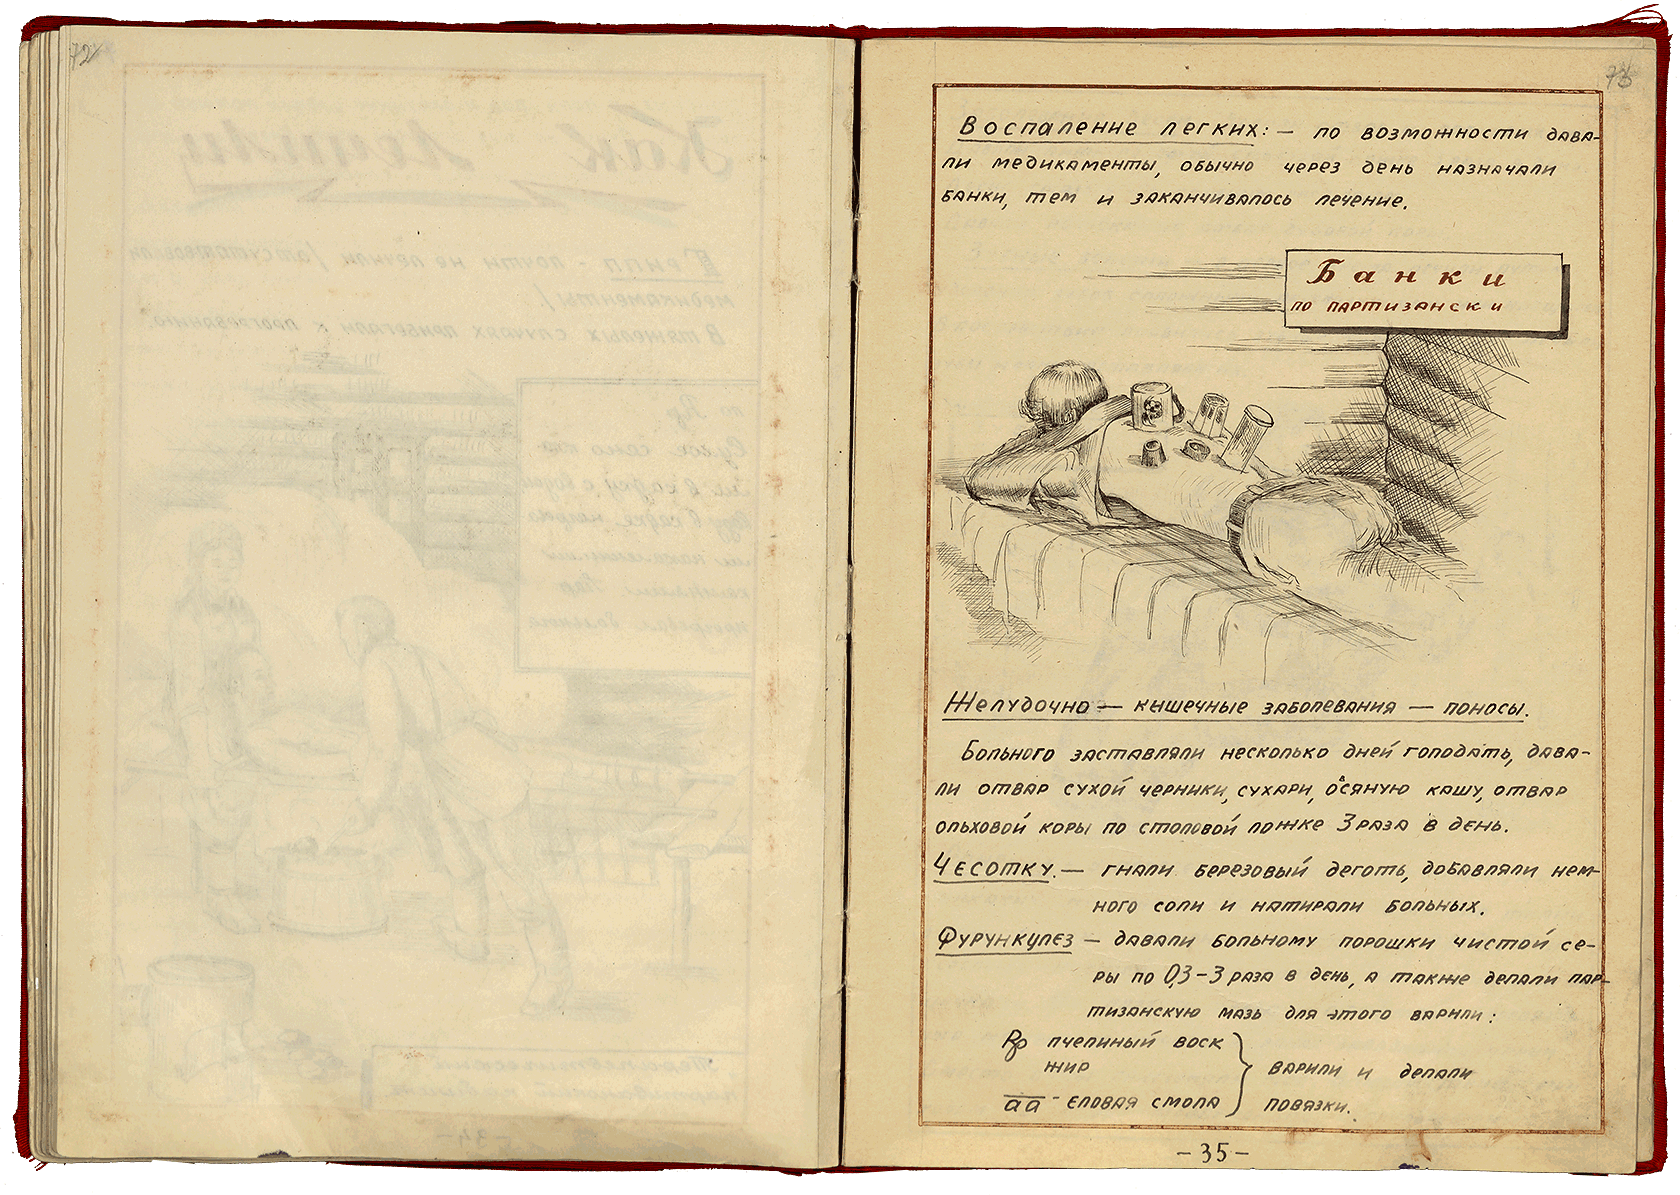 72
73
Воспаление легких: — по возможности дава-
ли медикаменты, обычно через день назначали
банки, тем и заканчивалось лечение.
Банки
по партизански
Желудочно — кишечные заболевания — поносы.
Больного заставляли несколько дней голодать, дава-
ли отвар сухой черники, сухари, овсяную кашу, отвар
ольховой коры по столовой ложке 3 раза в день.
Чесотку. — гнали березовый деготь, добавляли нем-
ного соли и натирали больных.
Фурункулез — давали больному порошки чистой се-
ры по 0,3 — 3 раза в день, а также делали пар-
тизанскую мазь для этого варили:
Rp пчелиный воск
жир
варили и делали
aa - еловая смола
повязки.
- 35 -